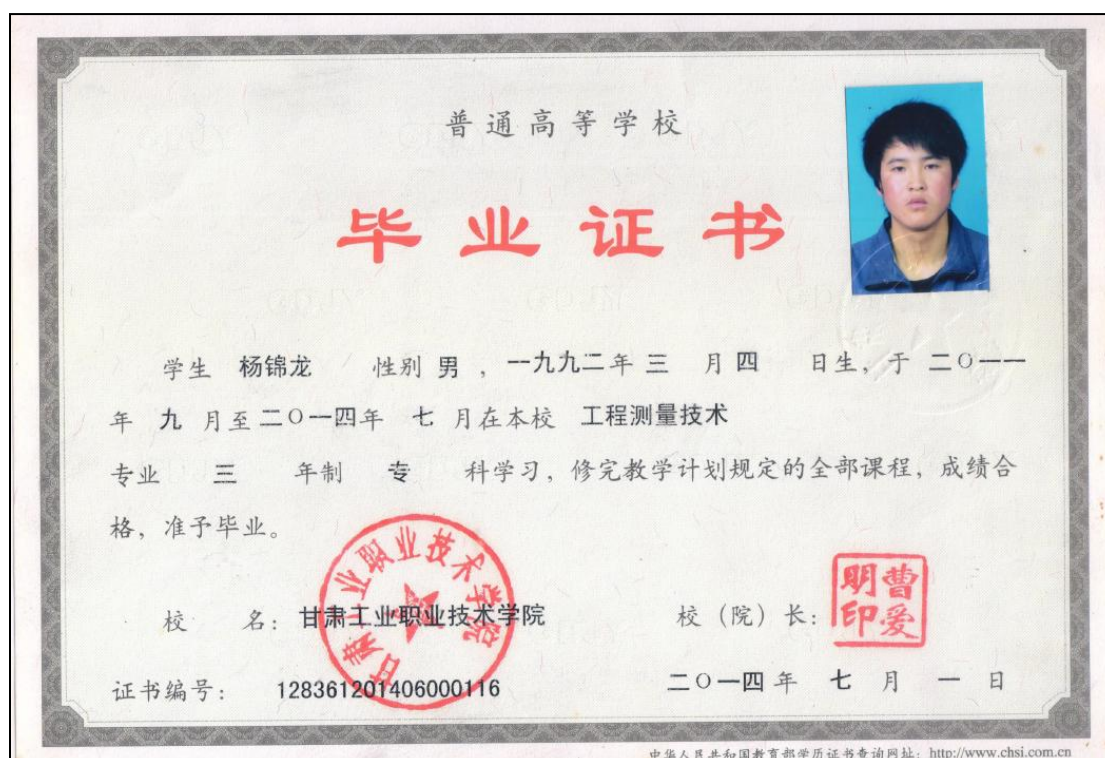 普通高等学校
毕业证书
学生 杨锦龙 性别 男 ，一九九二年 三 月 四 日生，于 二〇一一
年 九 月至 二〇一四年 七 月在本校 工程测量技术
专业 三 年制 专 科学习，修完教学计划规定的全部课程，成绩合
格，准予毕业。
甘肃工业职业技术学院
校 名：甘肃工业职业技术学院 校（院）长：曹爱明印
证书编号： 128361201406000116 二〇一四 年 七 月 一 日
中华人民共和国教育部学历证书查询网址：http://www.chsi.com.cn